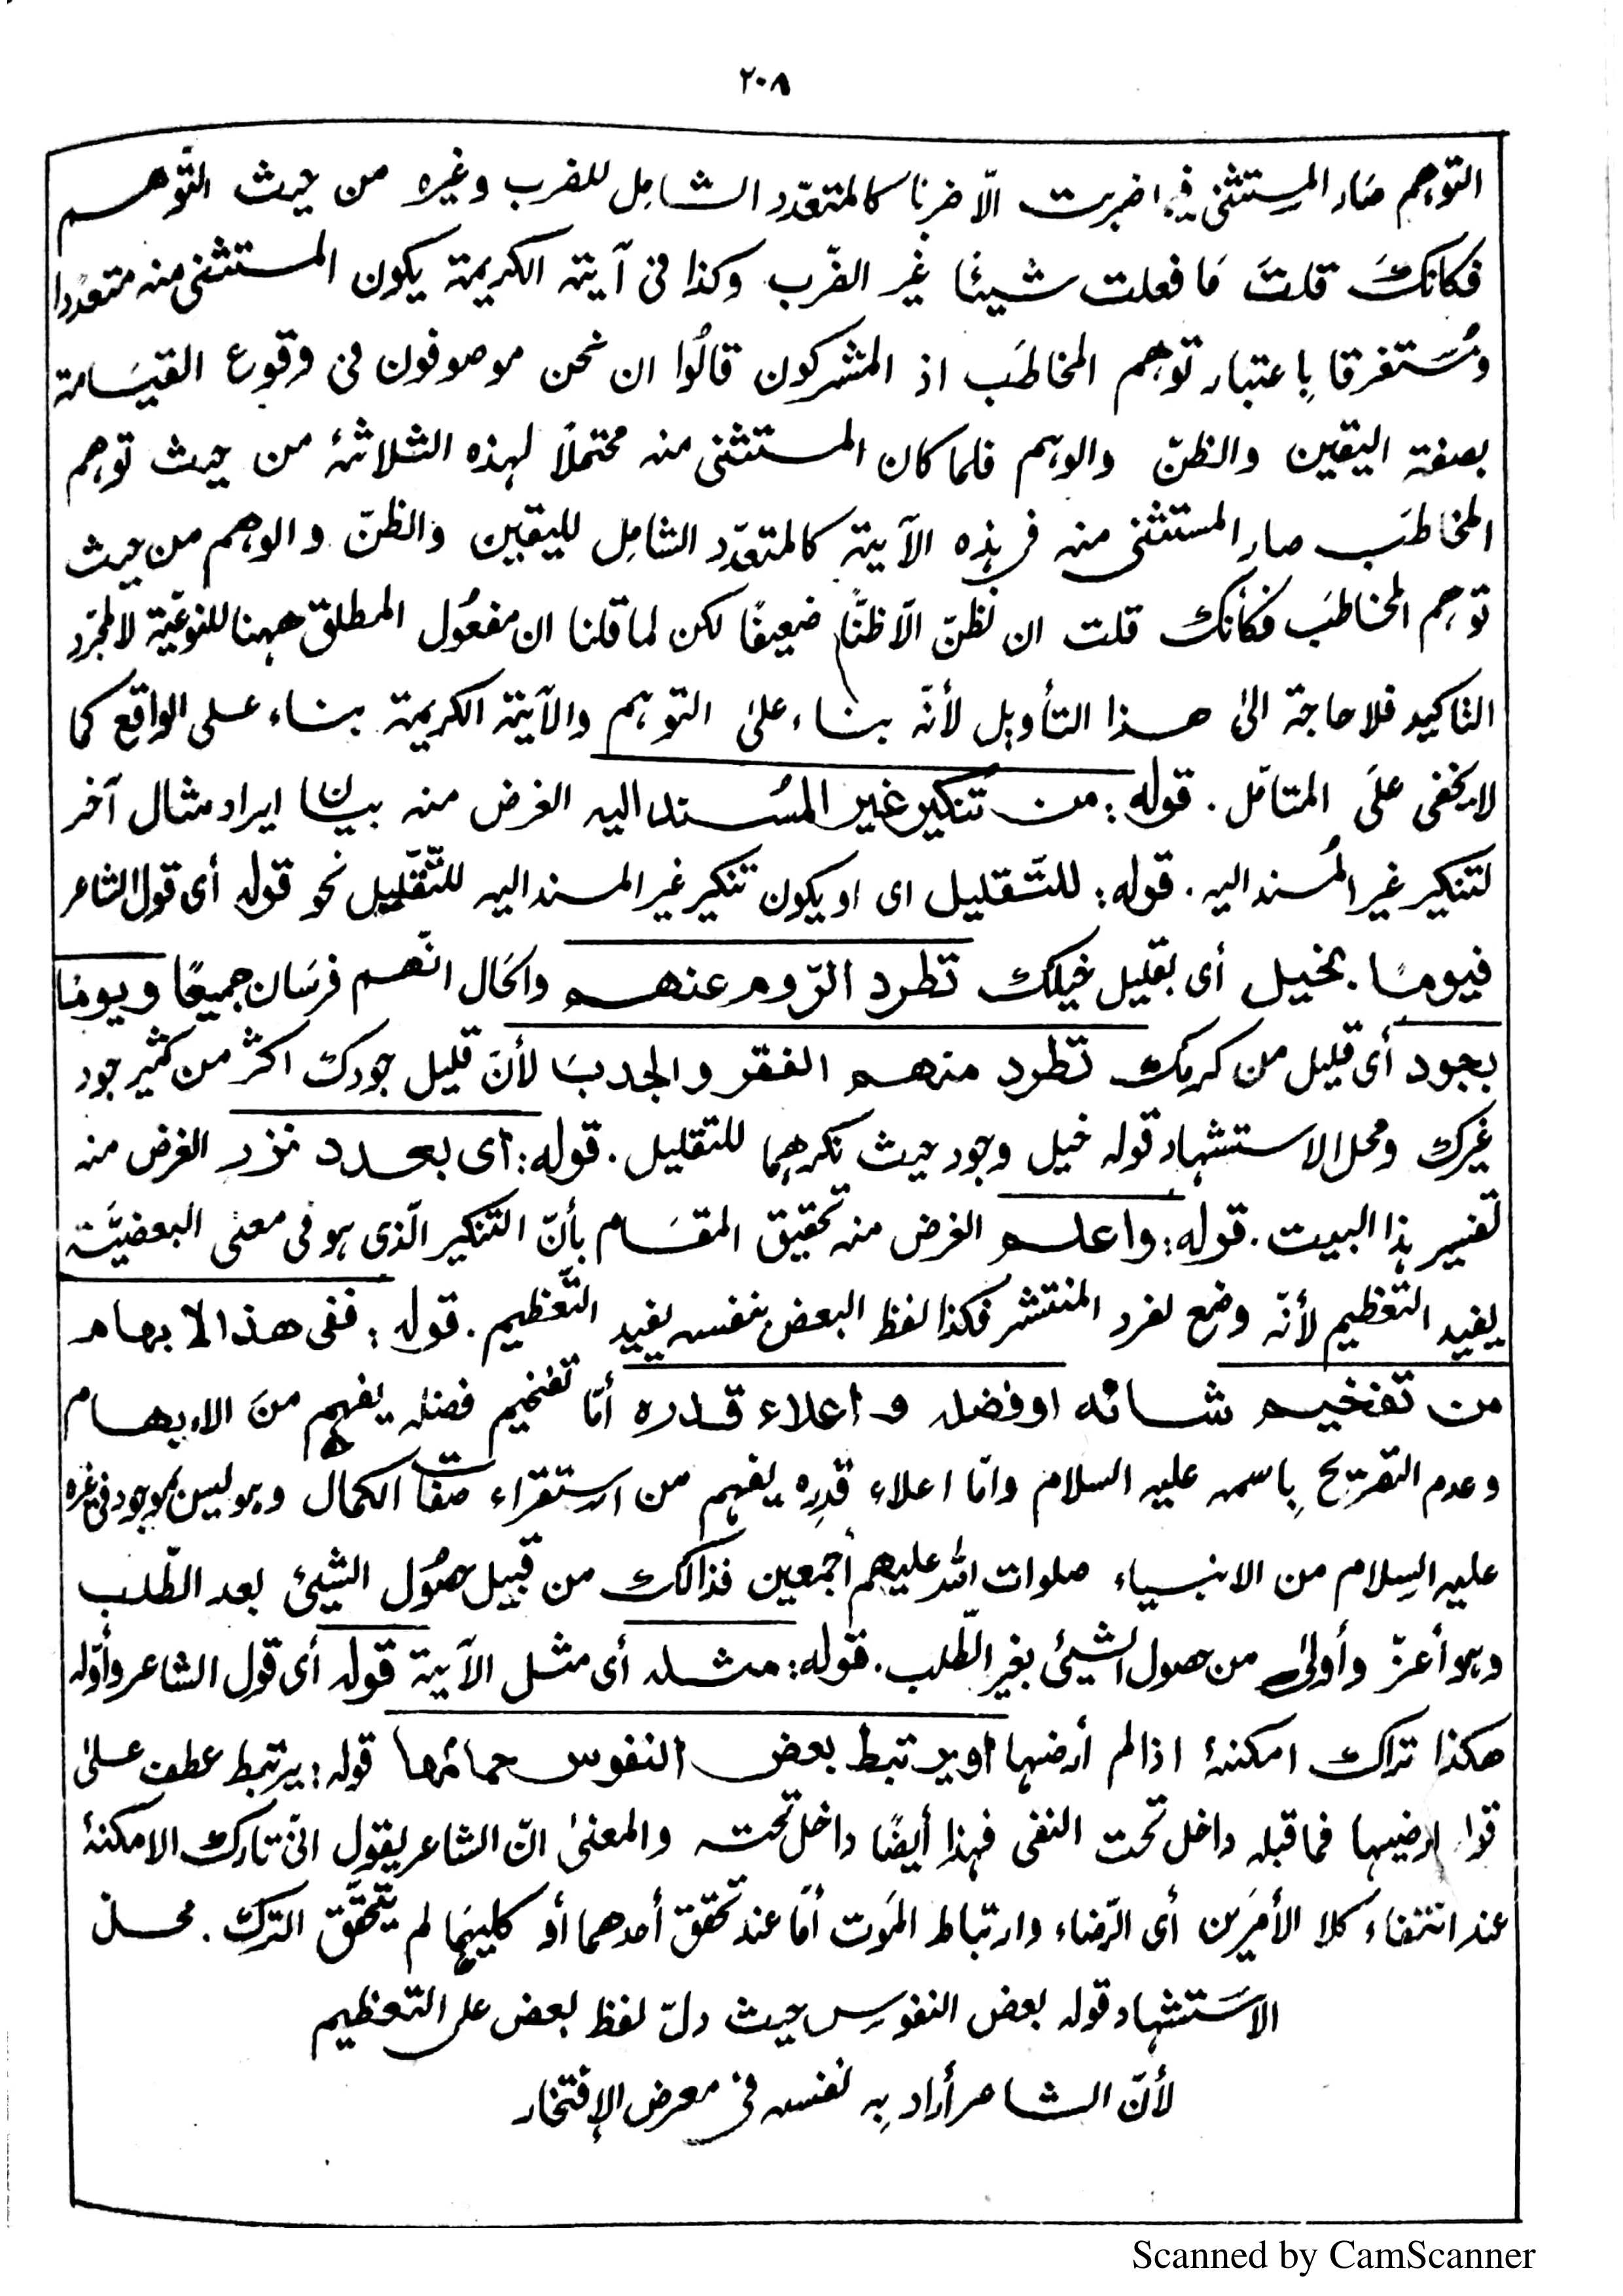 ٢٠٨
التوهم صَار المستثنى فى ما ضربت الّا ضربا كالمتعدّد الشامِل للضرب وغيره من حيث التّوهم
فكانكَ قلتَ مَا فعلت شيئًا غير الضّرب وكذا فى آية الكريمة يكون المستثنى منه متعدّدا
ومُستغرقا بِاعتبار توهم المخاطَب اذ المشركون قالُوا ان نحن موصوفون فى وقوع القيَامة
بصفة اليقين والظنّ والوهم فلما كان المستثنى منه محتملاً لهذه الثلاثة من حيث توهم
المخاطَب صار المستثنى منه فى هذه الآية كالمتعدّد الشامِل لليقين والظنّ والوهم من حيث
توهم المخاطَب فكأنك قلت ان نظنّ الّا ظنًّا ضعيفًا لكن لما قلنا ان مفعُول المطلق ههنا للنوعيّة لا لمجرّد
التاكيد فلا حاجة الىٰ هذا التأويل لأنّه بناء علىٰ التوهم والآية الكريمة بناء على الواقع كما
لا يخفى علَى المتامّل . قوله : من تنكير غير المسُند اليه الغرض منه بيان ايراد مثال آخر
لتنكير غير المُسند اليه . قوله : للتَّقليل اى او يكون تنكير غير المسند اليه للتّقليل نحو قوله أى قول الشاعر
فيومًا . بخيل أى بقليل خيلك تطرد الرّوم عنهم والحَال انّهم فرسَان جميعًا ويومًا
بجود أى قليل من كرمك تطرد منهم الفقر والجدبَ لأنَ قليل جودك اكثر من كثير جود
غيرك ومحل الاستشهاد قوله خيل وجود حيث نكرهما للتقليل . قوله : اى بعدد نزر الغرض منه
تفسير هذا البيت . قوله : واعلم الغرض منه تحقيق المقَام بأنّ التّنكير الّذى هو فى معنى البعضيَّة
يفيد التعظيم لأنّه وضع لفرد المنتشر فكذا لفظ البعض بنفسه يفيد التّعظيم . قوله : ففى هذا الابهام
من تفخيم شانه او فضله و اعلاء قدره أمّا تفخيم فضله يفهم منَ الابهام
وعدم التصريح بِاسمه عليه السلام وامّا اعلاء قدرِه يفهم من استقراء صفات الكمال وهو ليس بموجود فى غيره
عليه السلام من الانبياء صلوات الله عليهم أجمعين فذالك من قبيل حصُول الشيئ بعد الطّلب
وهو أعزّ وأولىٰ من حصول الشيئ بغير الطّلب . قوله : مثله أى مثل الآية قوله أى قول الشاعر وأوّله
هكذا تراك امكنة اذا لم أرضها او يرتبط بعض النفوس حمامها قوله : يرتبط عطف علىٰ
قوله ارضيها فما قبله داخل تحت النفى فهذا أيضًا داخل تحته والمعنىٰ انّ الشاعر يقول انّى تارك الامكنة
عند انتفاء كلا الأمرَين أى الرّضاء وارتباط المَوت أمّا عند تحقق أحدهما أو كليهما لم يتحقّق الترك . محل
الاسَتشهاد قوله بعض النفوس حيث دلّ لفظ بعض على التعظيم
لأنّ الشاعر أراد بِه نفسه فى معرض الإفتخار
Scanned by CamScanner